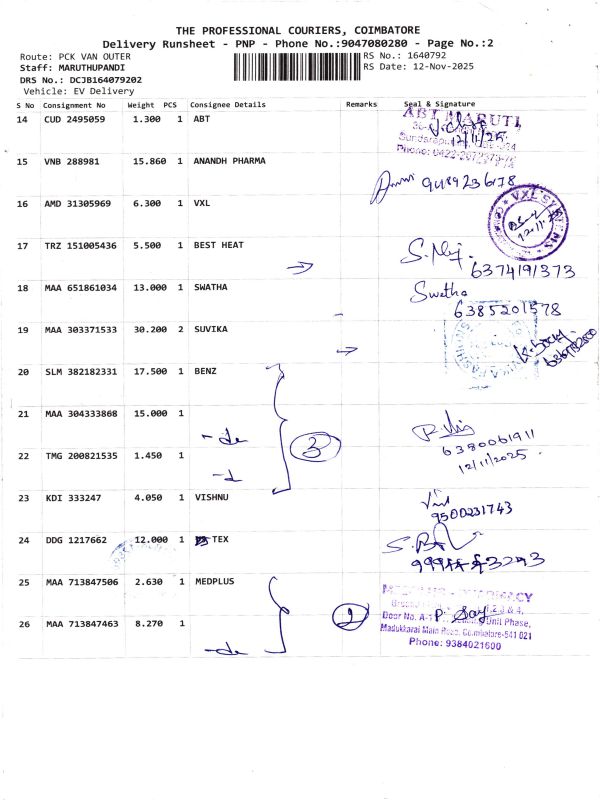 THE PROFESSIONAL COURIERS, COIMBATORE
Delivery Runsheet - PNP - Phone No.:9047080280 - Page No.:2
Route: PCK VAN OUTER
RS No.: 1640792
Staff: MARUTHUPANDI
RS Date: 12-Nov-2025
DRS No.: DCJB164079202
Vehicle: EV Delivery
S No Consignment No Weight PCS Consignee Details Remarks Seal & Signature
14 CUD 2495059 1.300 1 ABT
ABT MARUTI
12/11/25
15 VNB 288981 15.860 1 ANANDH PHARMA
9489236178
16 AMD 31305969 6.300 1 VXL
17 TRZ 151005436 5.500 1 BEST HEAT
6374191373
18 MAA 651861034 13.000 1 SWATHA
Swetha
6385201578
19 MAA 303371533 30.200 2 SUVIKA
20 SLM 382182331 17.500 1 BENZ
21 MAA 304333868 15.000 1
-do
3
6380061911
12/11/2025
22 TMG 200821535 1.450 1
23 KDI 333247 4.050 1 VISHNU
9500231743
24 DDG 1217662 12.000 1 TEX
25 MAA 713847506 2.630 1 MEDPLUS
26 MAA 713847463 8.270 1
-do
2
Door No. A-1
Unit Phase,
Madukkarai Main Road, Coimbatore-541 021
Phone: 9384021600